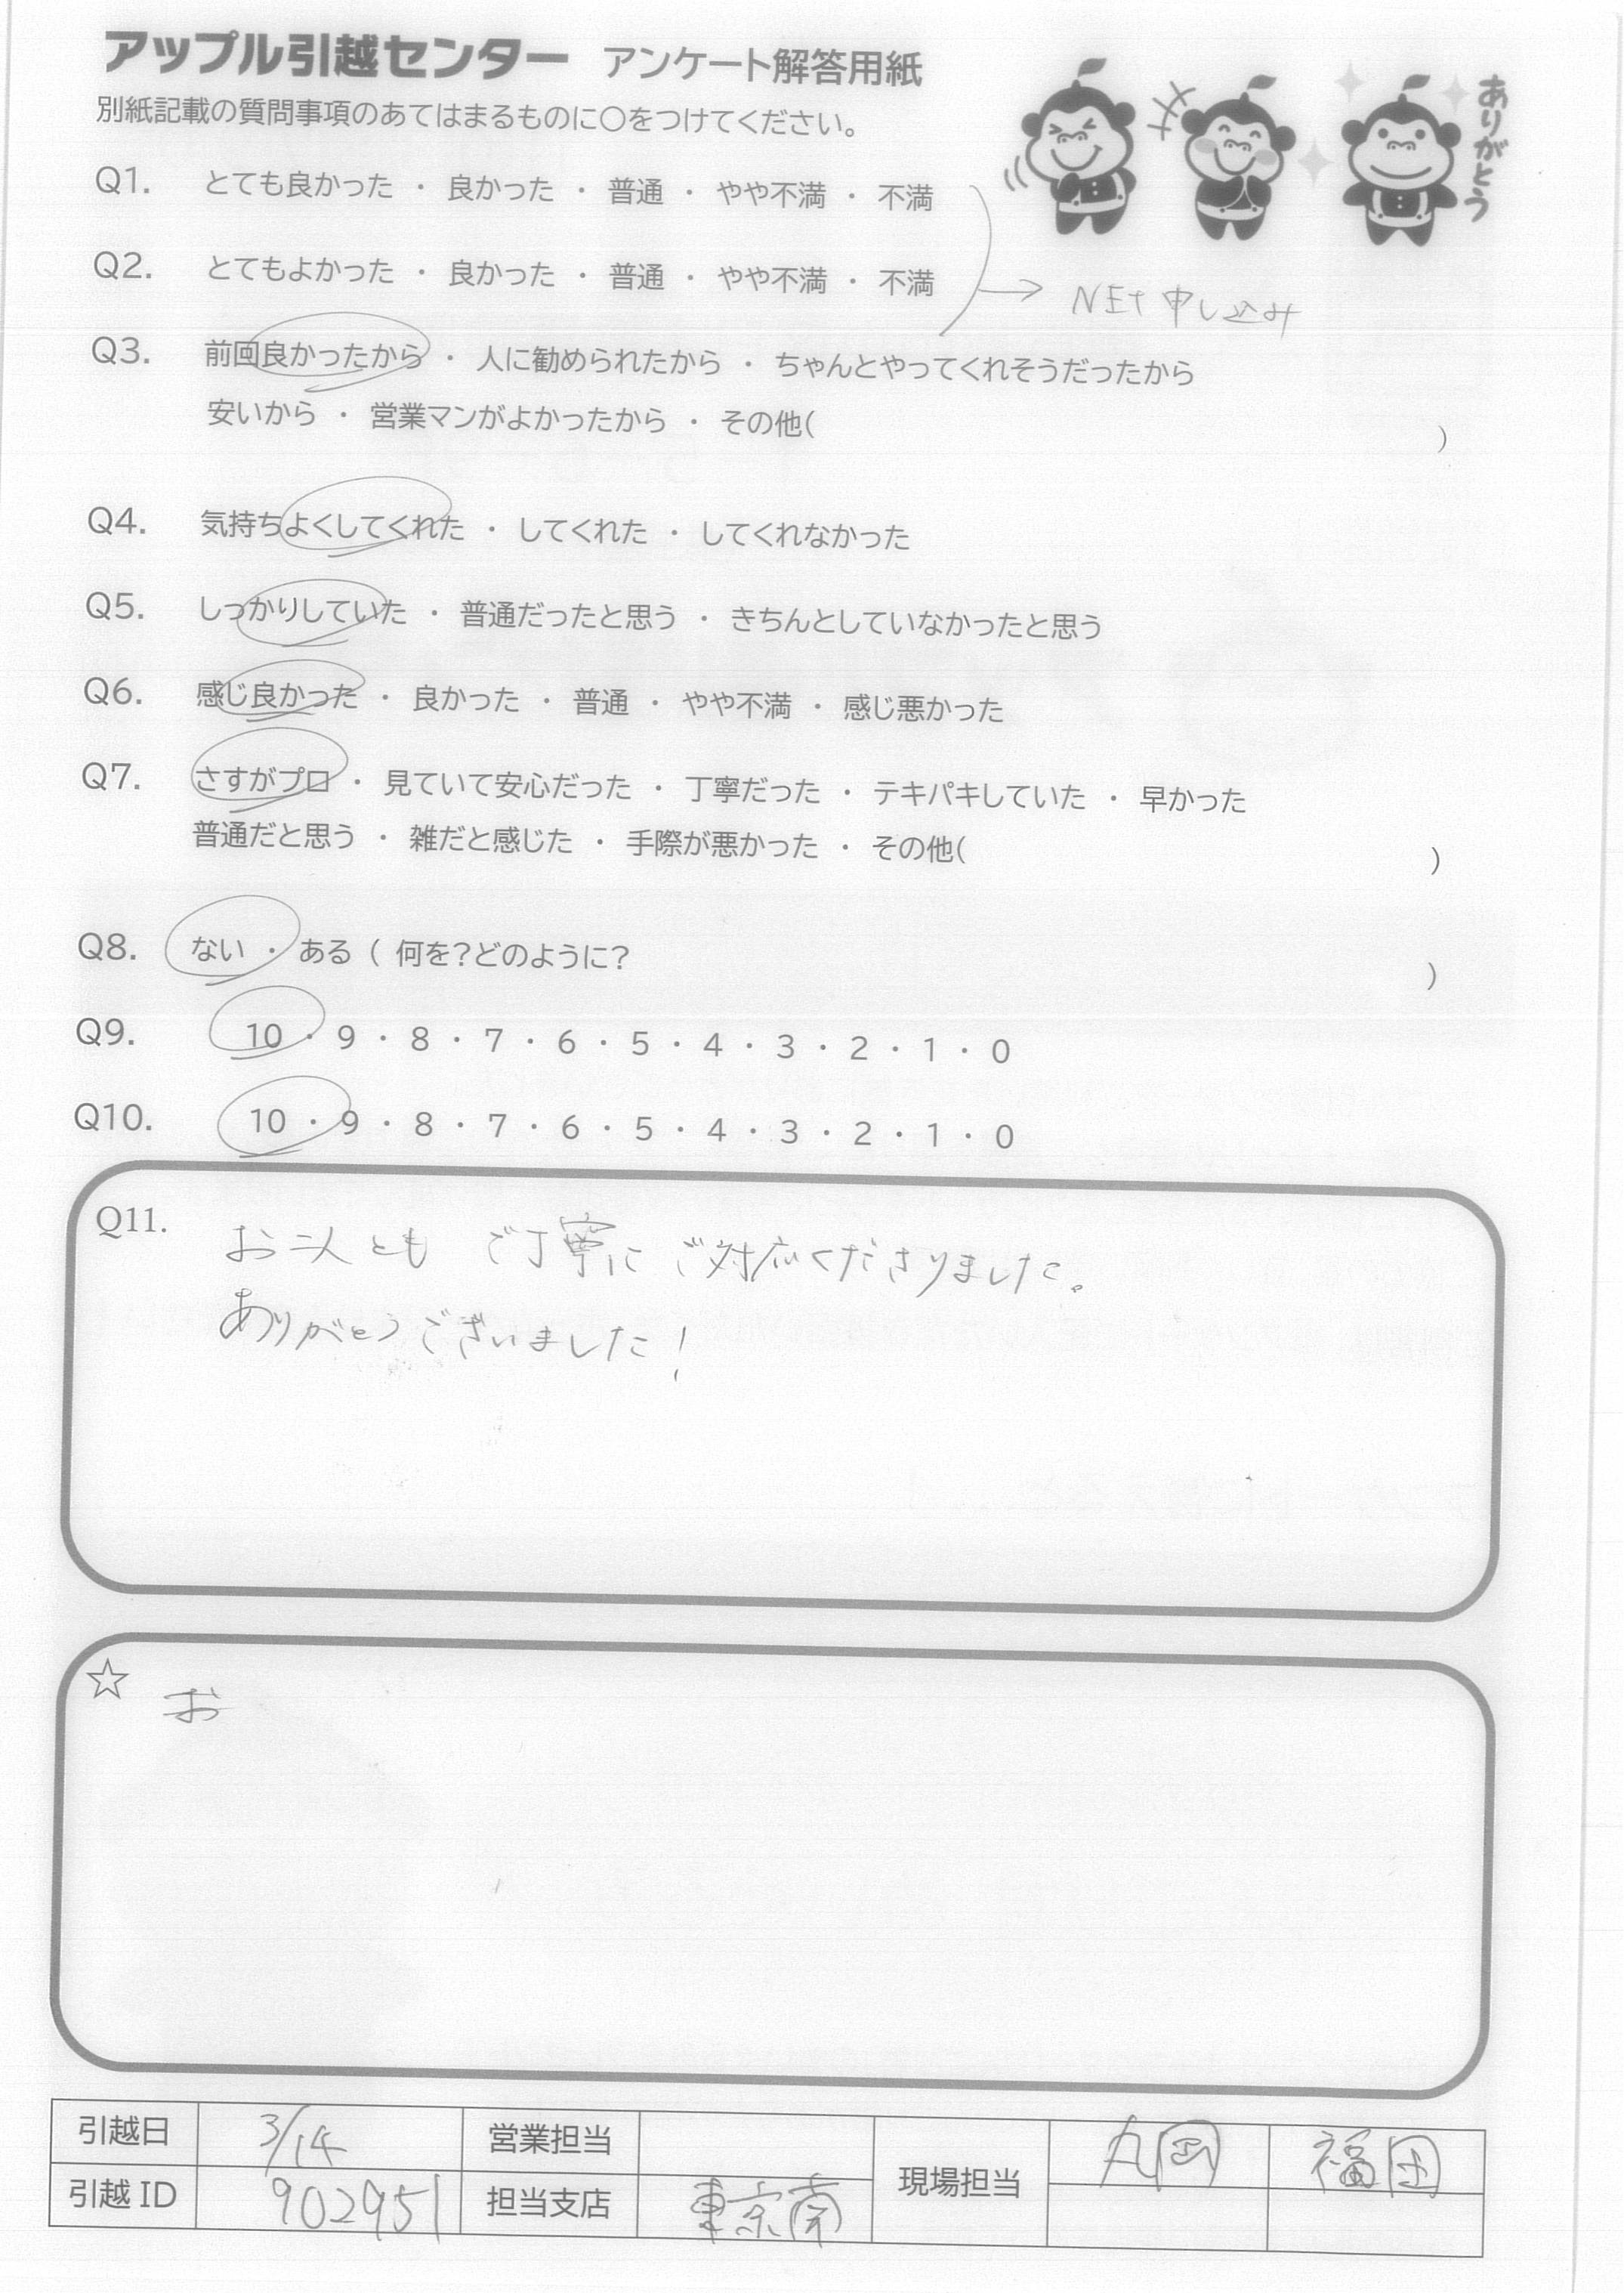 アップル引越センター アンケート解答用紙
別紙記載の質問事項のあてはまるものに〇をつけてください。
ありがとう
Q1. とても良かった ・ 良かった ・ 普通 ・ やや不満 ・ 不満
Q2. とてもよかった ・ 良かった ・ 普通 ・ やや不満 ・ 不満
→ NEt 申し込み
Q3. 前回良かったから ・ 人に勧められたから ・ ちゃんとやってくれそうだったから
安いから ・ 営業マンがよかったから ・ その他( )
Q4. 気持ちよくしてくれた ・ してくれた ・ してくれなかった
Q5. しっかりしていた ・ 普通だったと思う ・ きちんとしていなかったと思う
Q6. 感じ良かった ・ 良かった ・ 普通 ・ やや不満 ・ 感じ悪かった
Q7. さすがプロ ・ 見ていて安心だった ・ 丁寧だった ・ テキパキしていた ・ 早かった
普通だと思う ・ 雑だと感じた ・ 手際が悪かった ・ その他( )
Q8. ない ・ ある ( 何を?どのように? )
Q9. 10 ・ 9 ・ 8 ・ 7 ・ 6 ・ 5 ・ 4 ・ 3 ・ 2 ・ 1 ・ 0
Q10. 10 ・ 9 ・ 8 ・ 7 ・ 6 ・ 5 ・ 4 ・ 3 ・ 2 ・ 1 ・ 0
Q11. お二人とも ご丁寧に ご対応くださりました。
ありがとうございました!
☆ お
引越日 3/14 営業担当 現場担当 丸岡 福田
引越 ID 902951 担当支店 東京南